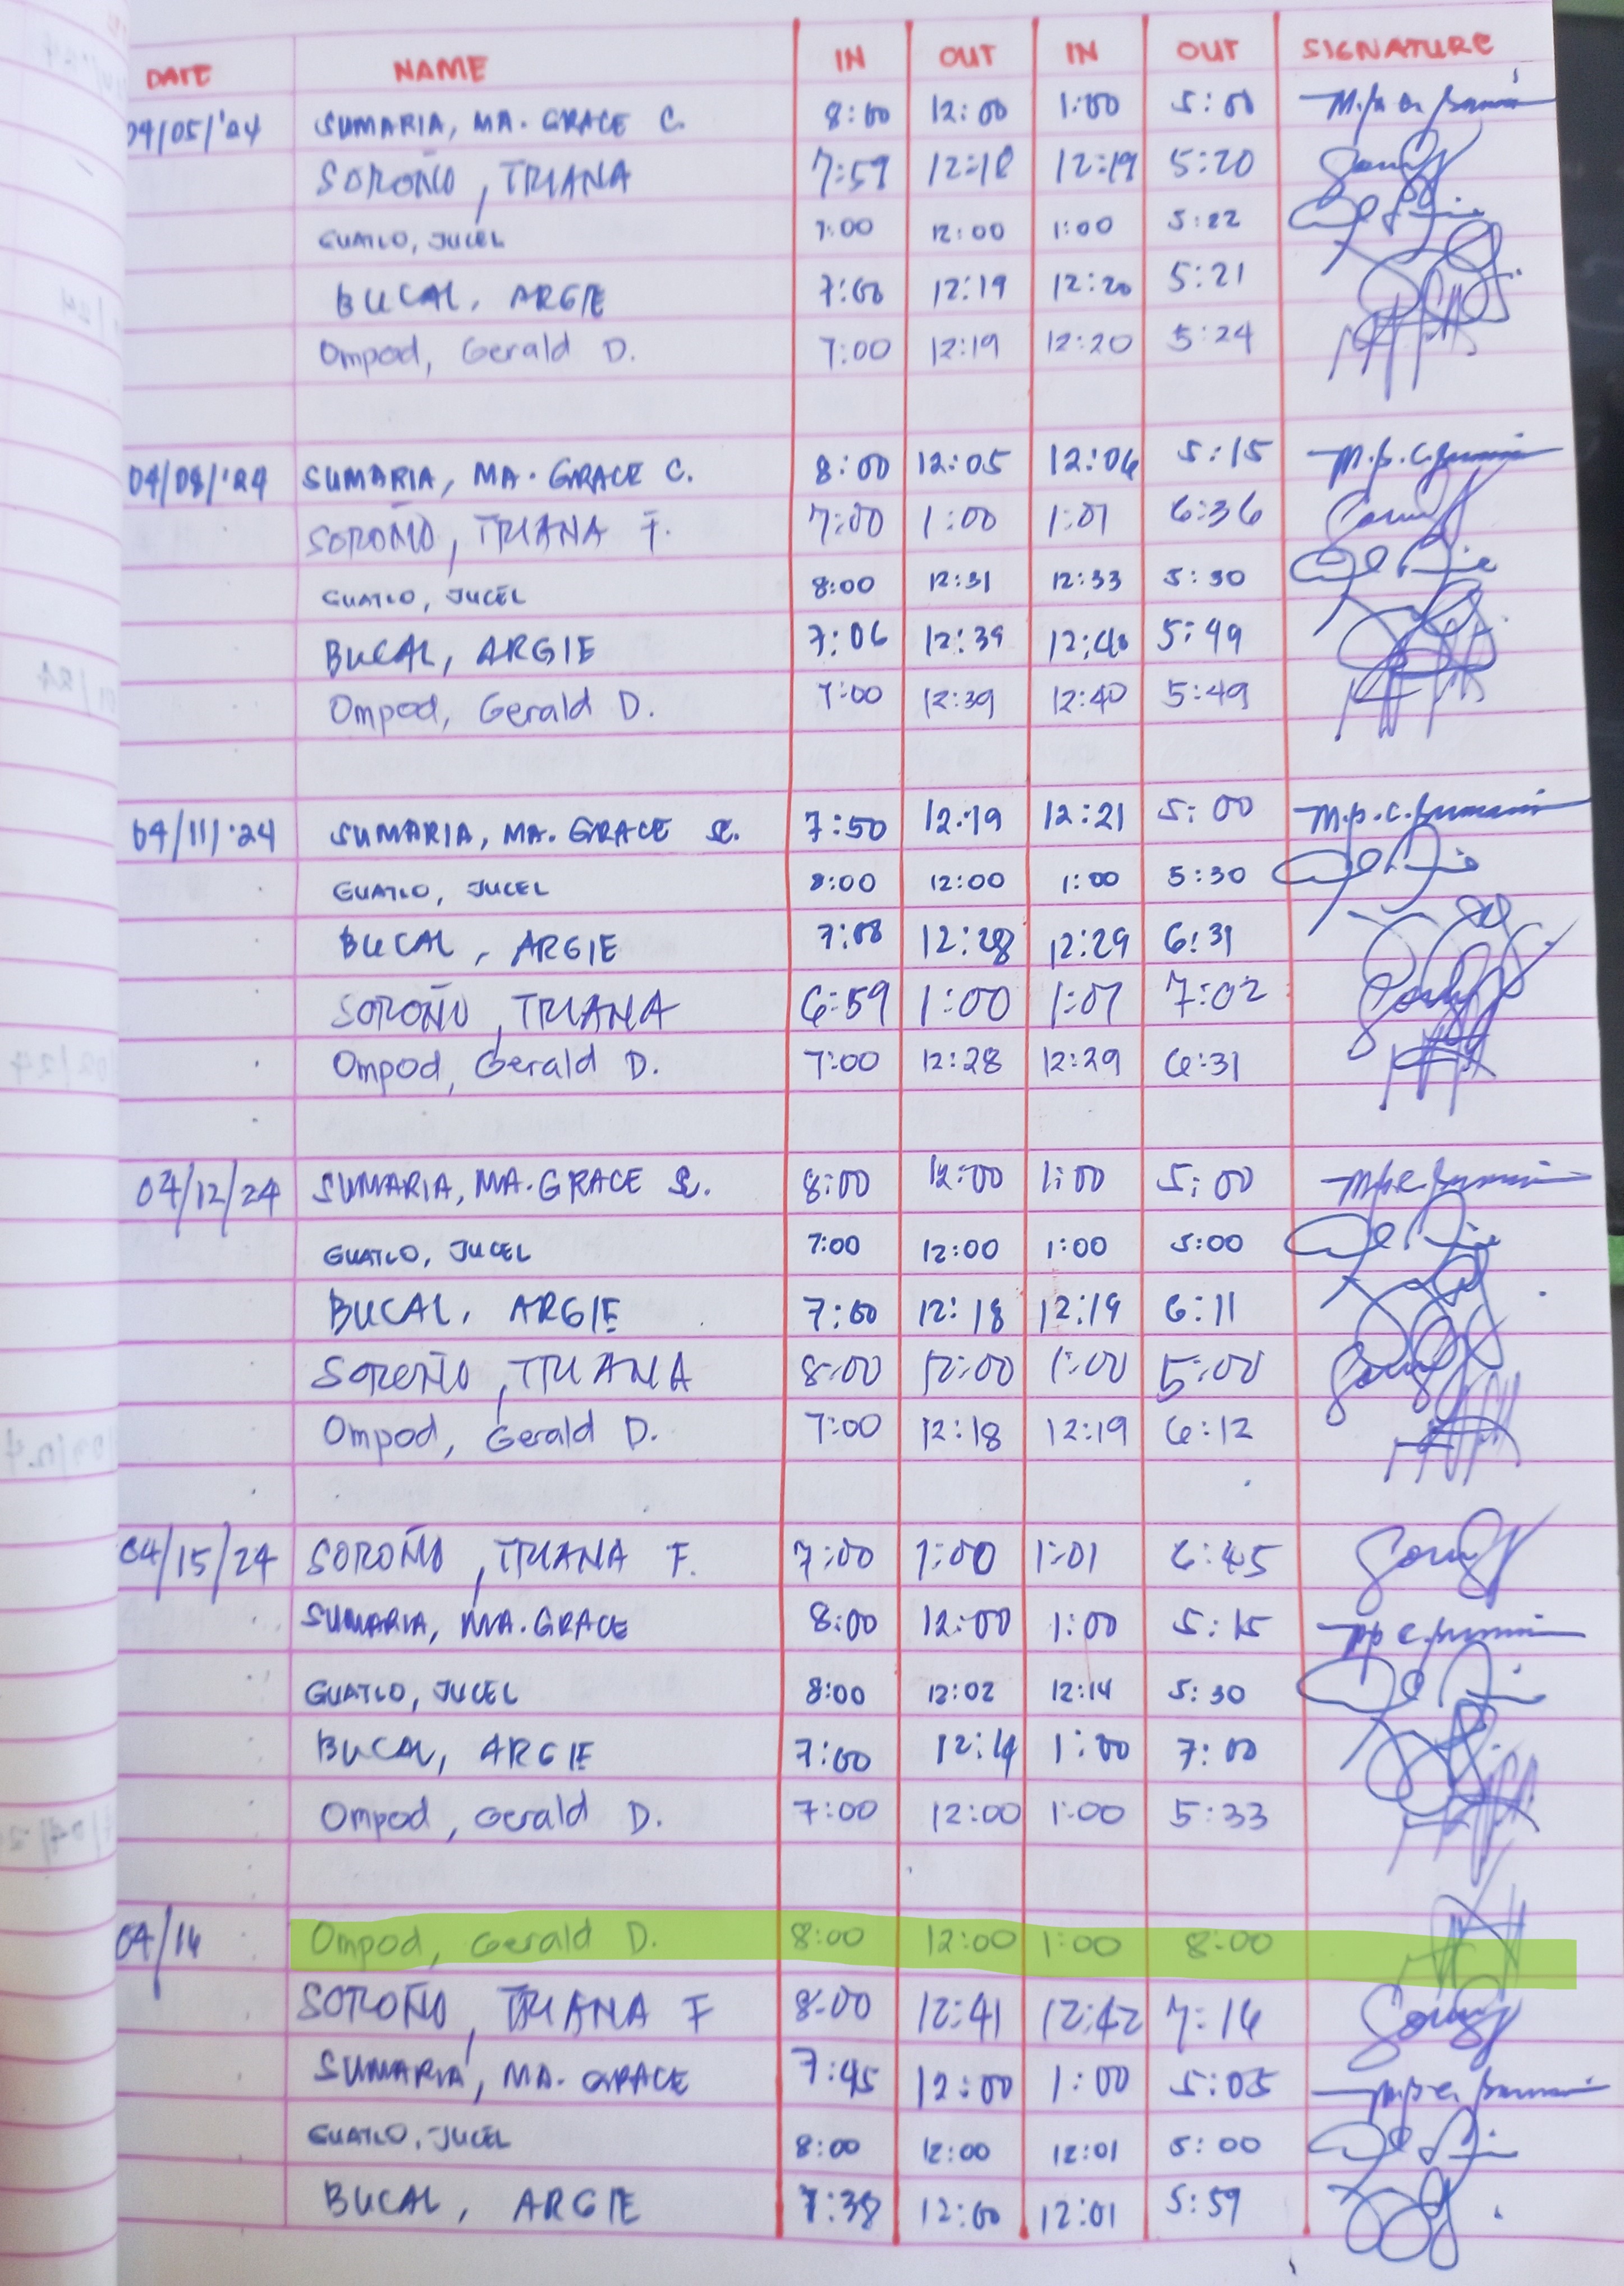 DATE NAME IN OUT IN OUT SIGNATURE
04/05/'24 SUMARIA, MA. GRACE C. 8:00 12:00 1:00 5:00
SOROÑO, TRIANA 7:59 12:18 12:19 5:20
GUATLO, JUCEL 7:00 12:00 1:00 5:22
BUCAL, ARGIE 7:00 12:19 12:20 5:21
Ompod, Gerald D. 7:00 12:19 12:20 5:24
04/08/'24 SUMARIA, MA. GRACE C. 8:00 12:05 12:06 5:15
SOROÑO, TRIANA F. 7:00 1:00 1:01 6:36
GUATLO, JUCEL 8:00 12:31 12:33 5:30
BUCAL, ARGIE 7:06 12:39 12:40 5:49
Ompod, Gerald D. 7:00 12:39 12:40 5:49
04/11/'24 SUMARIA, MA. GRACE C. 7:50 12:19 12:21 5:00
GUATLO, JUCEL 8:00 12:00 1:00 5:30
BUCAL, ARGIE 7:08 12:28 12:29 6:31
SOROÑO, TRIANA 6:59 1:00 1:01 7:02
Ompod, Gerald D. 7:00 12:28 12:29 6:31
04/12/24 SUMARIA, MA. GRACE C. 8:00 12:00 1:00 5:00
GUATLO, JUCEL 7:00 12:00 1:00 5:00
BUCAL, ARGIE 7:00 12:18 12:19 6:11
SOROÑO, TRIANA 8:00 12:00 1:00 5:00
Ompod, Gerald D. 7:00 12:18 12:19 6:12
04/15/24 SOROÑO, TRIANA F. 7:00 1:00 1:01 6:45
SUMARIA, MA. GRACE 8:00 12:00 1:00 5:15
GUATLO, JUCEL 8:00 12:02 12:14 5:30
BUCAL, ARGIE 7:00 12:14 1:00 7:00
Ompod, Gerald D. 7:00 12:00 1:00 5:33
04/16 Ompod, Gerald D. 8:00 12:00 1:00 8:00
SOROÑO, TRIANA F 8:00 12:41 12:42 7:16
SUMARIA, MA. GRACE 7:45 12:00 1:00 5:05
GUATLO, JUCEL 8:00 12:00 12:01 5:00
BUCAL, ARGIE 7:38 12:00 12:01 5:59